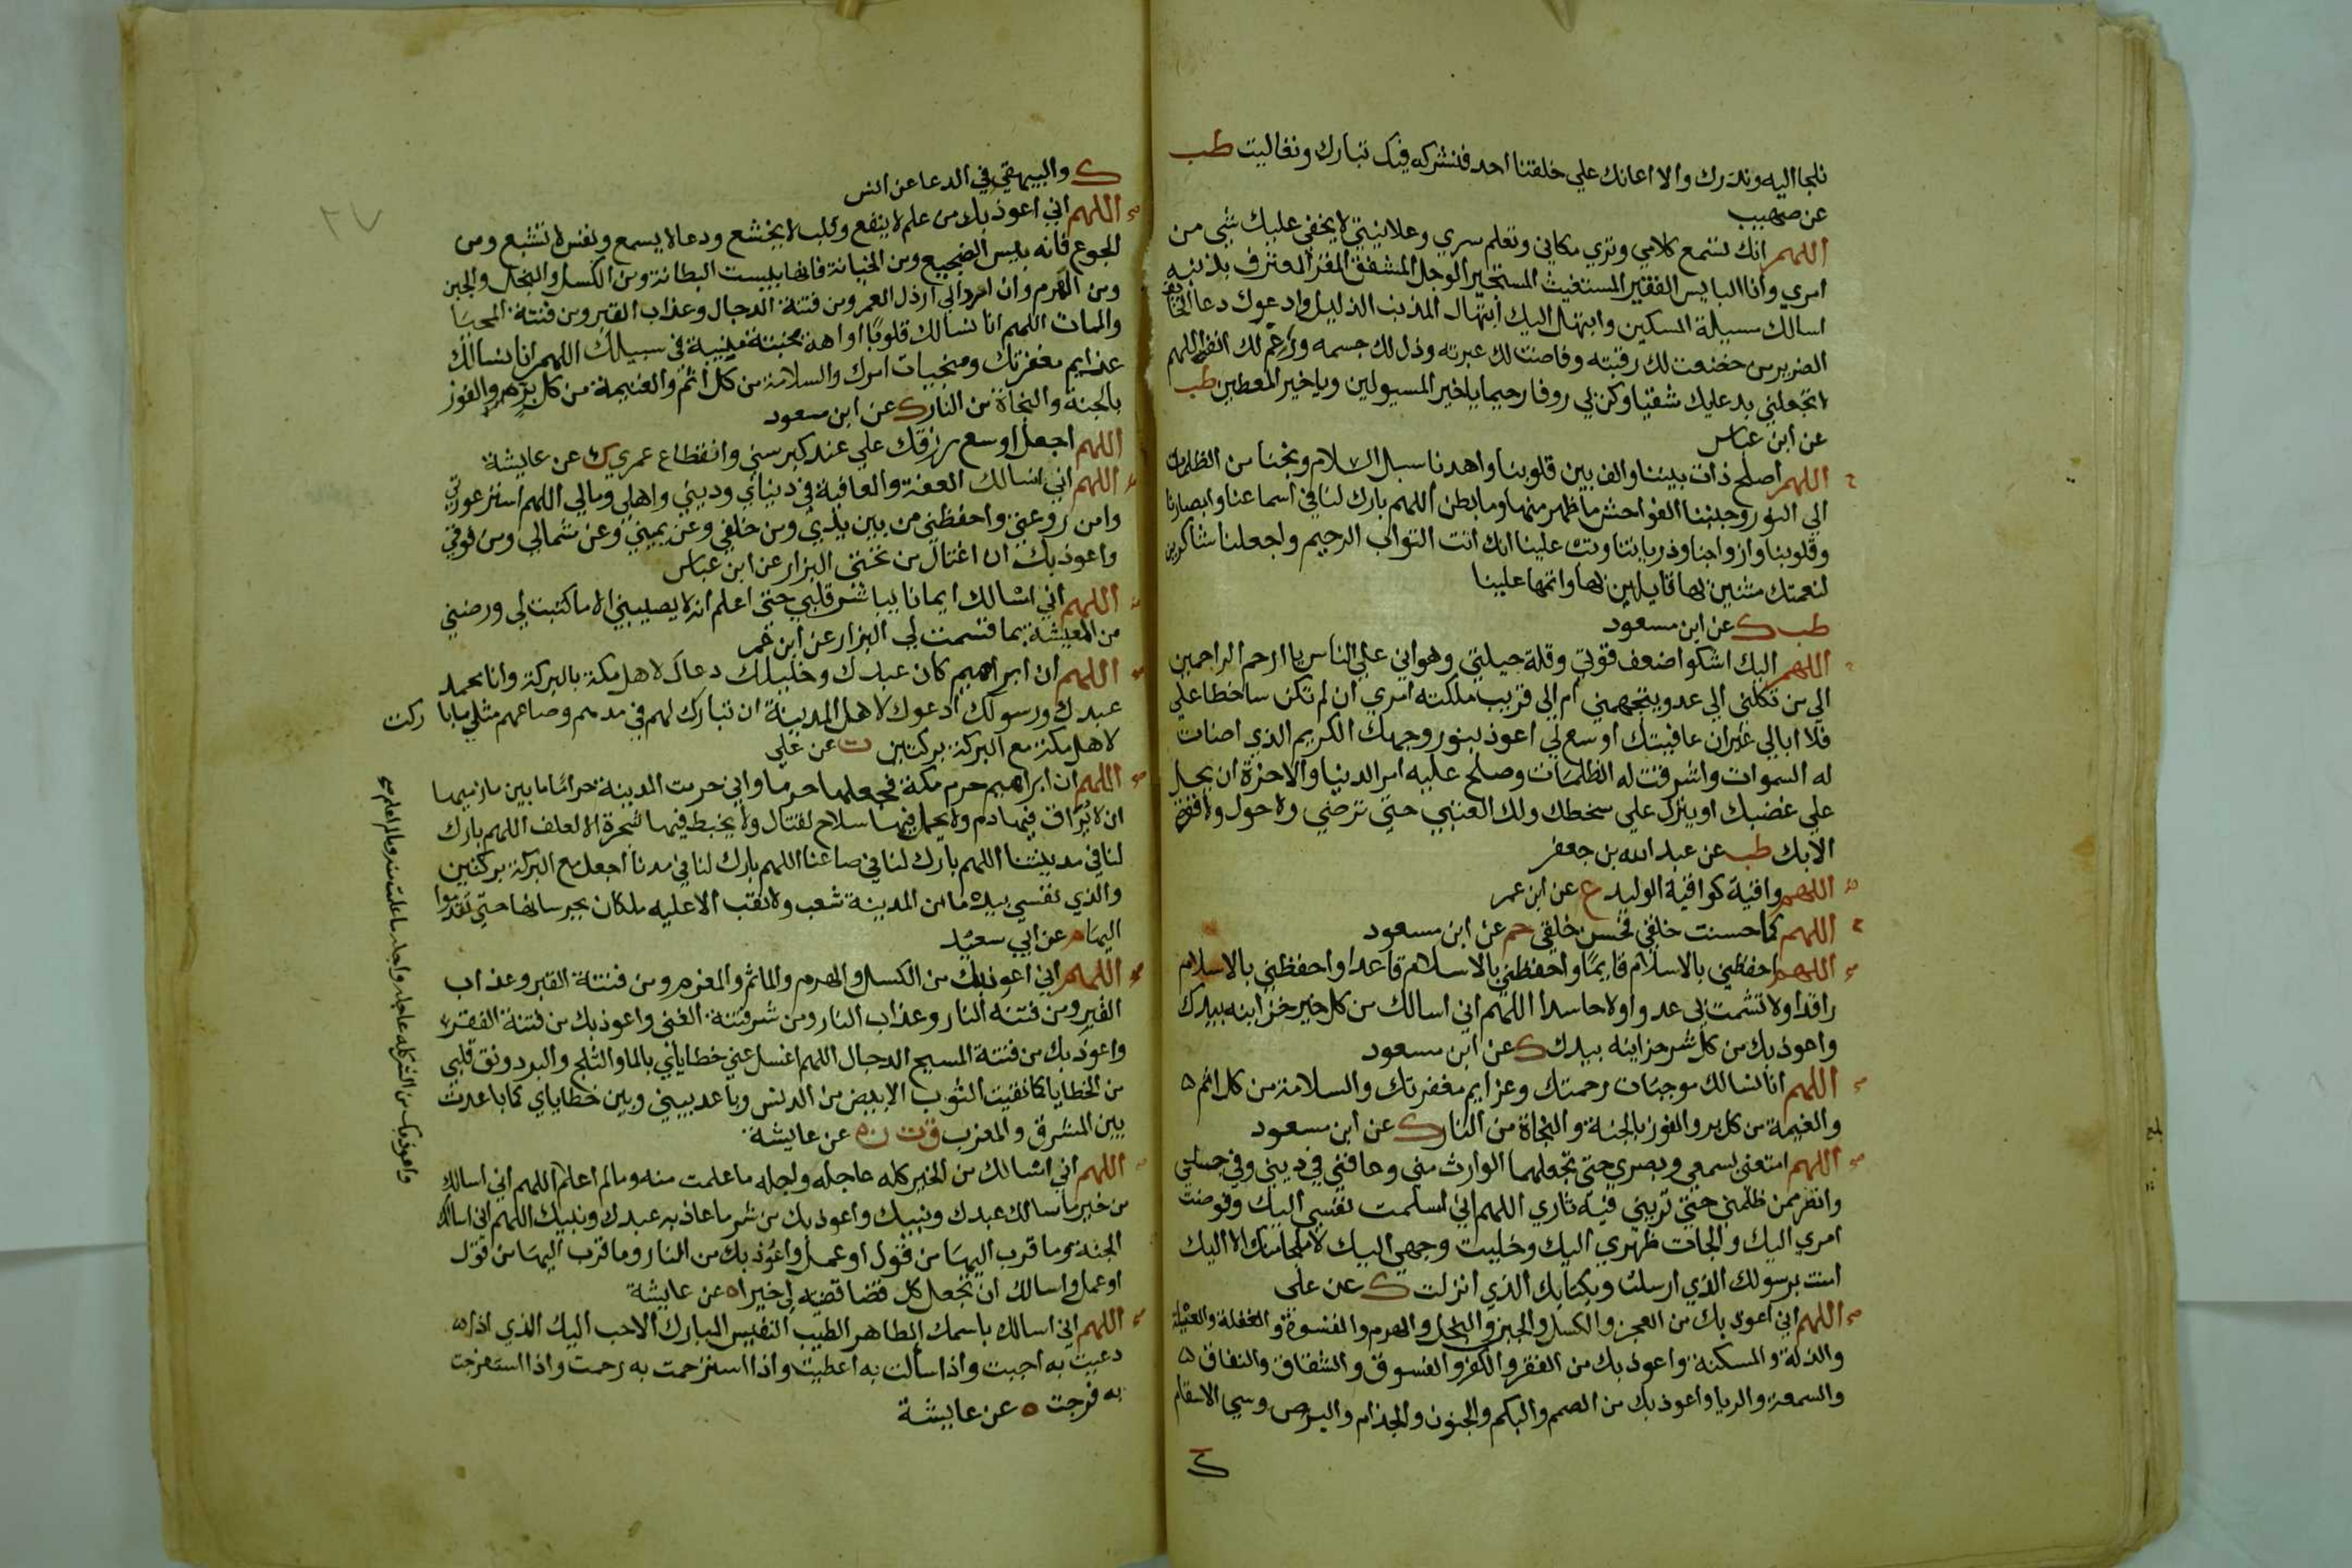 نلجا اليه ونذرك ولا اعانك علي خلقنا احد فنشركه فيك تباركت وتعاليت طب
عن صهيب
اللهم انك تسمع كلامي وتري مكاني وتعلم سري وعلانيتي لا يخفي عليك شي من
امري وانا البايس الفقير المستغيث المستجير الوجل المشفق المقر المعترف بذنبه
اسالك مسيلة المسكين وابتهل اليك ابتهال المذنب الذليل وادعوك دعا الخايف
الضرير من خضعت لك رقبته وفاضت لك عبرته وذل لك جسمه ورغم لك انفه اللهم
لا تجعلني بدعايك شقيا وكن لي روفا رحيما يا خير المسيولين ويا خير المعطين طب
عن ابن عباس
اللهم اصلح ذات بيننا والف بين قلوبنا واهدنا سبل السلام ونجنا من الظلمات
الي النور وجنبنا الفواحش ما ظهر منها وما بطن اللهم بارك لنا في اسماعنا وابصارنا
وقلوبنا وازواجنا وذرياتنا وتب علينا انك انت التواب الرحيم واجعلنا شاكرين
لنعمتك مثنين بها قابلين لها واتمها علينا
طب ك عن ابن مسعود
اللهم اليك اشكوا ضعف قوتي وقلة حيلتي وهواني علي الناس يا ارحم الراحمين
الي من تكلني الي عدو يتجهمني ام الي قريب ملكته امري ان لم تكن ساخطا علي
فلا ابالي غيران عافيتك اوسع لي اعوذ بنور وجهك الكريم الذي اضات
له السموات واشرقت له الظلمات وصلح عليه امر الدنيا والاخرة ان يحل
علي غضبك او ينزل علي سخطك ولك العتبي حتي ترضي ولا حول ولا قوة
الا بك طب عن عبد الله بن جعفر
اللهم واقية كواقية الوليد ع عن ابن عمر
اللهم كما حسنت خلقي فحسن خلقي حم عن ابن مسعود
اللهم احفظني بالاسلام قايما واحفظني بالاسلام قاعدا واحفظني بالاسلام
راقدا ولا تشمت بي عدوا ولا حاسدا اللهم اني اسالك من كل خير خزاينه بيدك
واعوذ بك من كل شر خزاينه بيدك ك عن ابن مسعود
اللهم انا نسالك موجبات رحمتك وعزايم مغفرتك والسلامة من كل اثم
والغنيمة من كل بر والفوز بالجنة والنجاة من النار ك عن ابن مسعود
اللهم امتعني بسمعي وبصري حتي تجعلهما الوارث مني وعافني في ديني وفي جسدي
وانصرني ممن ظلمني حتي تريني فيه ثاري اللهم اني اسلمت نفسي اليك وفوضت
امري اليك والجات ظهري اليك وخليت وجهي اليك لا ملجا منك الا اليك
امنت برسولك الذي ارسلت وبكتابك الذي انزلت ك عن علي
اللهم اني اعوذ بك من العجز والكسل والجبن والبخل والهرم والقسوة والغفلة والعيلة
والذلة والمسكنة واعوذ بك من الفقر والكفر والفسوق والشقاق والنفاق
والسمعة والريا واعوذ بك من الصمم والبكم والجنون والجذام والبرص وسي الاسقام
ك
٢٧
ك والبيهقي في الدعا عن انس
اللهم اني اعوذ بك من علم لا ينفع وقلب لا يخشع ودعا لا يسمع ونفس لا تشبع ومن
الجوع فانه بيس الضجيع ومن الخيانة فانها بيست البطانة ومن الكسل والبخل والجبن
ومن الهرم وان ارد الي ارذل العمر ومن فتنة الدجال وعذاب القبر ومن فتنة المحيا
والممات اللهم انا نسالك قلوبا اواهة مخبتة منيبة في سبيلك اللهم انا نسالك
عزايم مغفرتك ومنجيات امرك والسلامة من كل اثم والغنيمة من كل بر والفوز
بالجنة والنجاة من النار ك عن ابن مسعود
اللهم اجعل اوسع رزقك علي عند كبر سني وانقطاع عمري ك عن عايشة
اللهم اني اسالك العفة والعافية في دنياي وديني واهلي ومالي اللهم استر عورتي
وامن روعتي واحفظني من بين يدي ومن خلفي وعن يميني وعن شمالي ومن فوقي
واعوذ بك ان اغتال من تحتي البزار عن ابن عباس
اللهم اني اسالك ايمانا يباشر قلبي حتي اعلم انه لا يصيبني الا ما كتبت لي ورضني
من المعيشة بما قسمت لي البزار عن ابن عمر
اللهم ان ابراهيم كان عبدك وخليلك دعاك لاهل مكة بالبركة وانا محمد
عبدك ورسولك ادعوك لاهل المدينة ان تبارك لهم في مدهم وصاعهم مثلي ما باركت
لاهل مكة مع البركة بركتين ت عن علي
اللهم ان ابراهيم حرم مكة فجعلها حرما واني حرمت المدينة حراما ما بين مازميها
ان لا يراق فيها دم ولا يحمل فيها سلاح لقتال ولا يخبط فيها شجرة الا لعلف اللهم بارك
لنا في مدينتنا اللهم بارك لنا في صاعنا اللهم بارك لنا في مدنا اجعل مع البركة بركتين
والذي نفسي بيده ما من المدينة شعب ولا نقب الا عليه ملكان يحرسانها حتي تقدموا
اليها م عن ابي سعيد
اللهم اني اعوذ بك من الكسل والهرم والماثم والمغرم ومن فتنة القبر وعذاب
القبر ومن فتنة النار وعذاب النار ومن شر فتنة الغني واعوذ بك من فتنة الفقر
واعوذ بك من فتنة المسيح الدجال اللهم اغسل عني خطاياي بالما والثلج والبرد ونق قلبي
من الخطايا كما نقيت الثوب الابيض من الدنس وباعد بيني وبين خطاياي كما باعدت
بين المشرق والمغرب ق ت ن ه عن عايشة
اللهم اني اسالك من الخير كله عاجله واجله ما علمت منه وما لم اعلم اللهم اني اسالك
من خير ما سالك عبدك ونبيك واعوذ بك من شر ما عاذ به عبدك ونبيك اللهم اني اسالك
الجنة وما قرب اليها من قول او عمل واعوذ بك من النار وما قرب اليها من قول
او عمل واسالك ان تجعل كل قضا قضيته لي خيرا ه عن عايشة
اللهم اني اسالك باسمك الطاهر الطيب النفيس المبارك الاحب اليك الذي اذا
دعيت به اجبت واذا سالت به اعطيت واذا استرحمت به رحمت واذا استفرجت
به فرجت ه عن عايشة
واعوذ بك من الشر كله عاجله واجله ما علمت منه وما لم اعلم صح